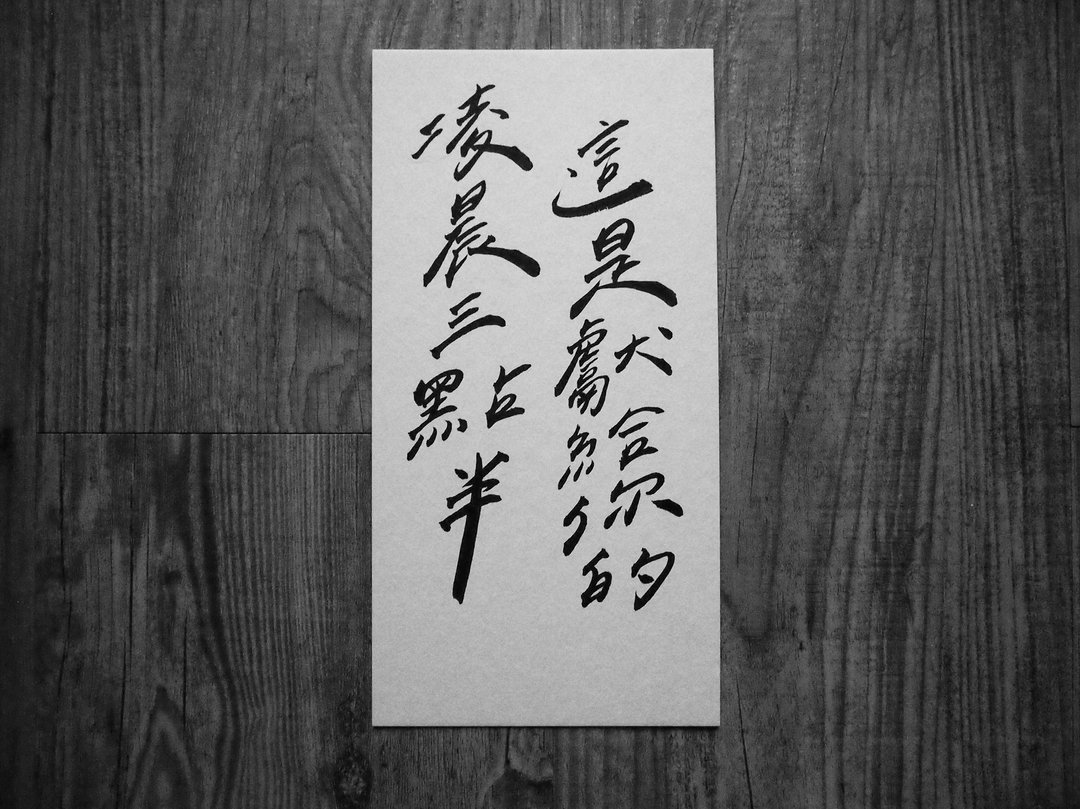 這是獻給你的
凌晨三點半